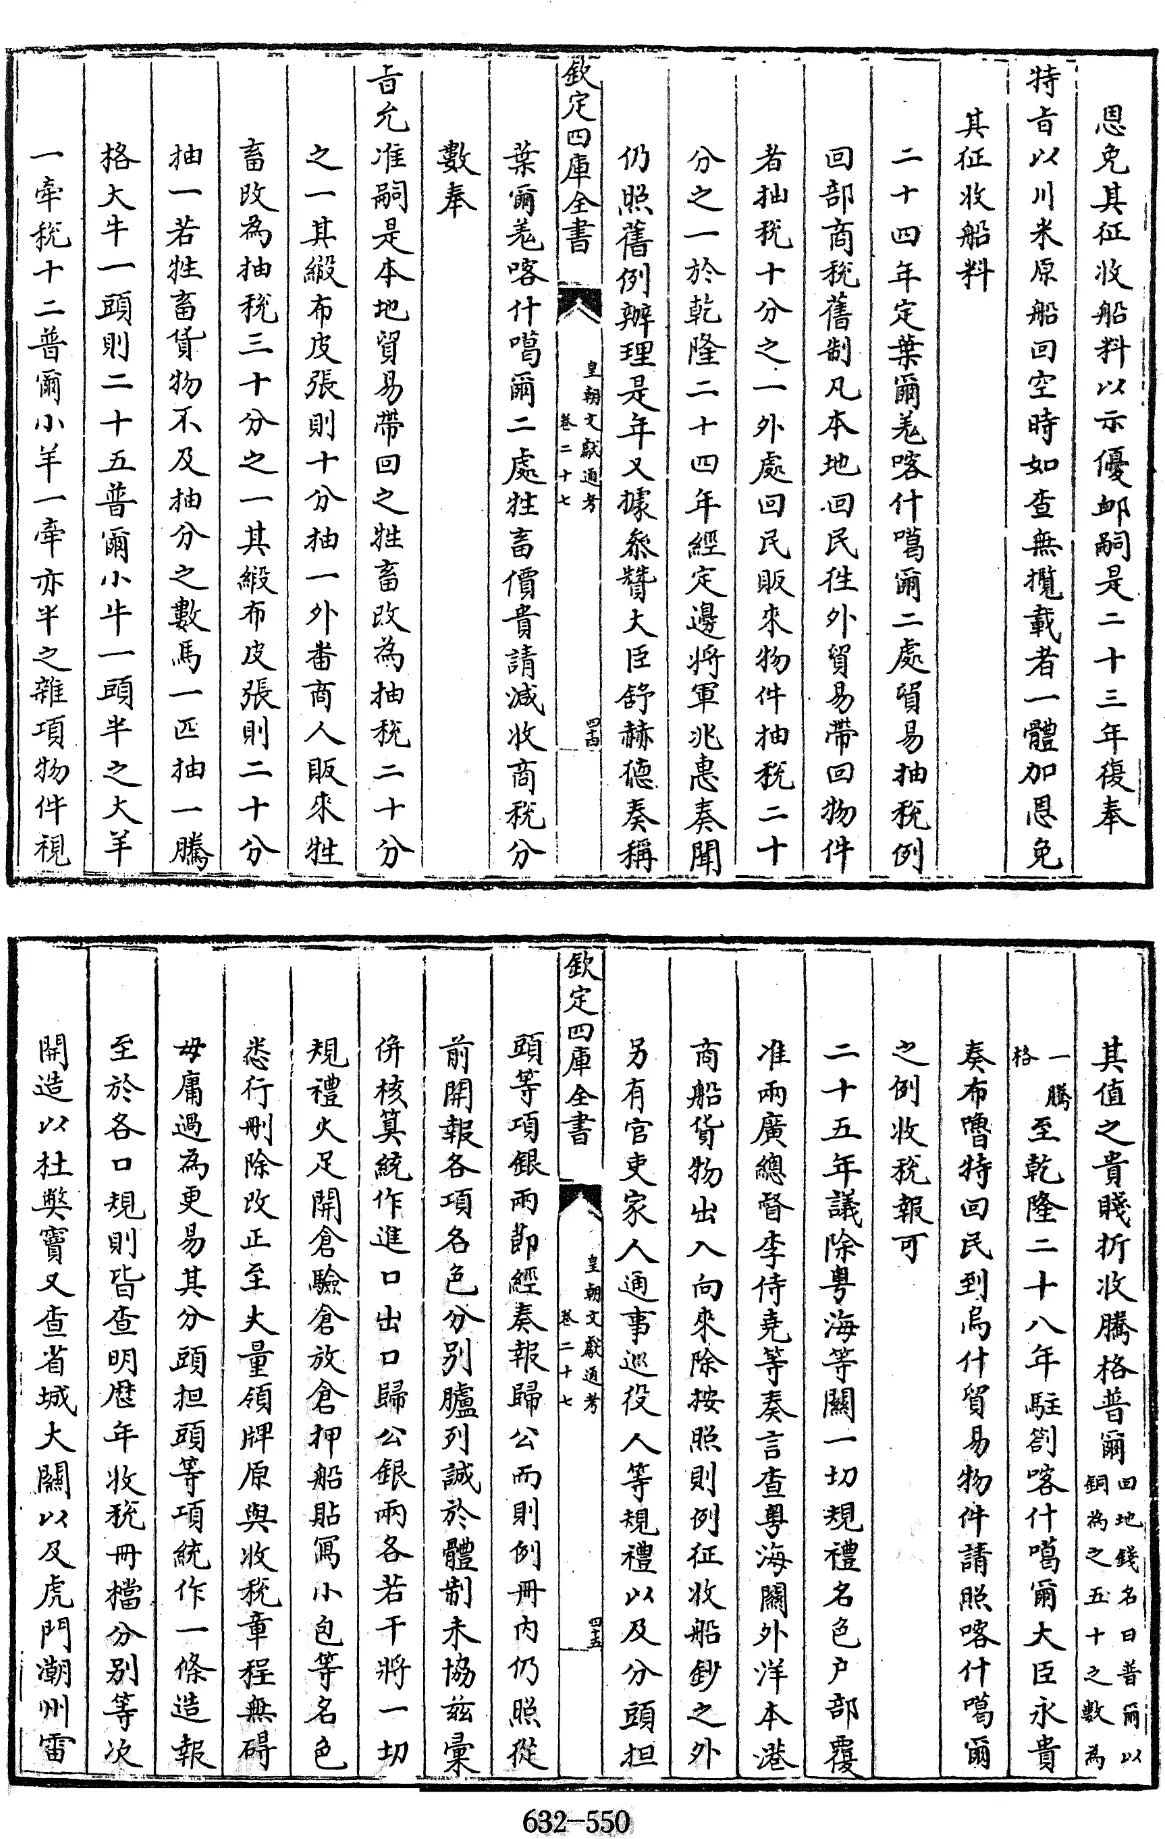 恩免其征收船料以示優䘏嗣是二十三年復奉
特旨以川米原船回空時如查無攬載者一體加恩免
其征收船料
二十四年定葉爾羌喀什噶爾二處貿易抽稅例
回部商稅舊制凡本地回民徃外貿易帶回物件
者抽稅十分之一外處回民販來物件抽稅二十
分之一於乾隆二十四年經定邊將軍兆惠奏聞
仍照舊例辦理是年又據叅贊大臣舒赫德奏稱
欽定四庫全書
皇朝文獻通考
卷二十七
四十四
葉爾羌喀什噶爾二處牲畜價貴請減收商稅分
數奉
旨允准嗣是本地貿易帶回之牲畜改為抽稅二十分
之一其緞布皮張則十分抽一外番商人販來牲
畜改為抽稅三十分之一其緞布皮張則二十分
抽一若牲畜貨物不及抽分之數馬一匹抽一騰
格大牛一頭則二十五普爾小牛一頭半之大羊
一牽稅十二普爾小羊一牽亦半之雜項物件視
其值之貴賤折收騰格普爾回地錢名曰普爾以
銅為之五十之數為
一騰
格至乾隆二十八年駐劄喀什噶爾大臣永貴
奏布嚕特回民到烏什貿易物件請照喀什噶爾
之例收稅報可
二十五年議除粵海等關一切規禮名色户部覆
准兩廣總督李侍堯等奏言查粵海關外洋本港
商船貨物出入向來除按照則例征收船鈔之外
另有官吏家人通事巡役人等規禮以及分頭担
欽定四庫全書
皇朝文獻通考
卷二十七
四十五
頭等項銀兩節經奏報歸公而則例冊內仍照從
前開報各項名色分別臚列誠於體制未協茲彚
併核算統作進口出口歸公銀兩各若干將一切
規禮火足開倉驗倉放倉押船貼寫小包等名色
悉行刪除改正至丈量領牌原與收稅章程無碍
毋庸過為更易其分頭担頭等項統作一條造報
至於各口規則皆查明歷年收稅冊檔分別等次
開造以杜弊竇又查省城大關以及虎門潮州雷
632-550